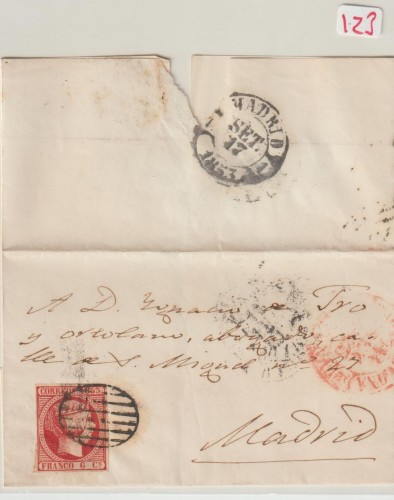 1.23
MADRID
SET.
17
1853.
A D. Ygnacio de Tro
y Ortolano, abogado ca
lle de S. Miguel nº 27
Madrid
CORREOS 1853.
FRANCO 6 Cs